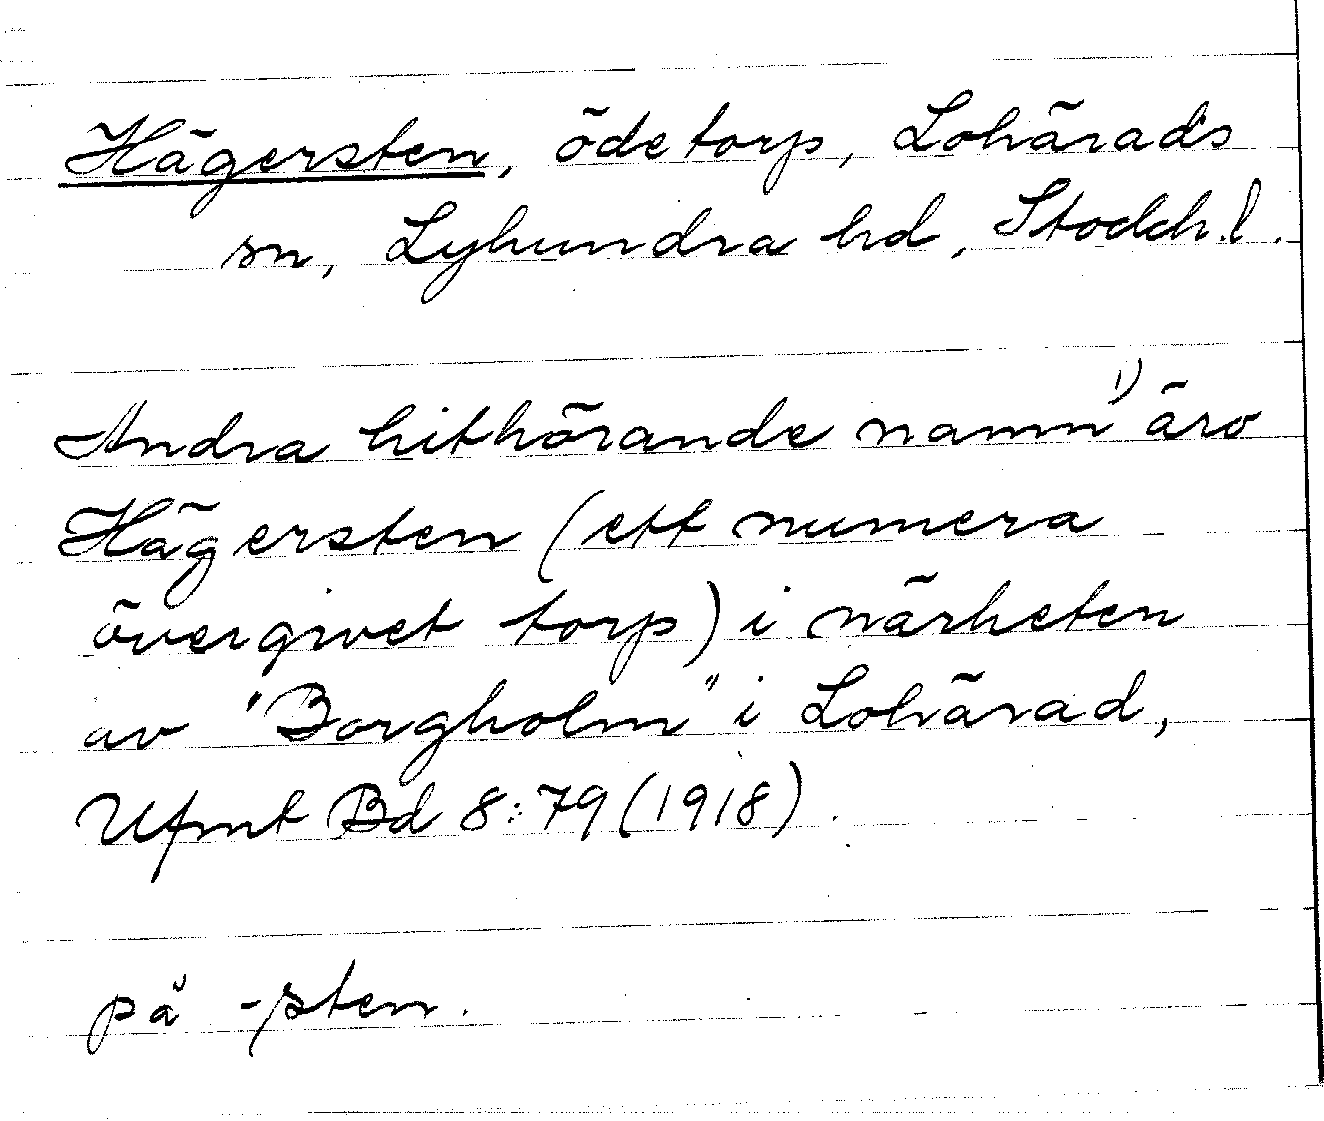 Hägersten, ödetorp, Lohärads
sn, Lyhundra hd, Stockh.l.
Andra hithörande namn¹⁾ äro
Hägersten (ett numera
övergivet torp) i närheten
av "Borgholm" i Lohärad,
Ufmt Bd 8:79 (1918).
på -sten.